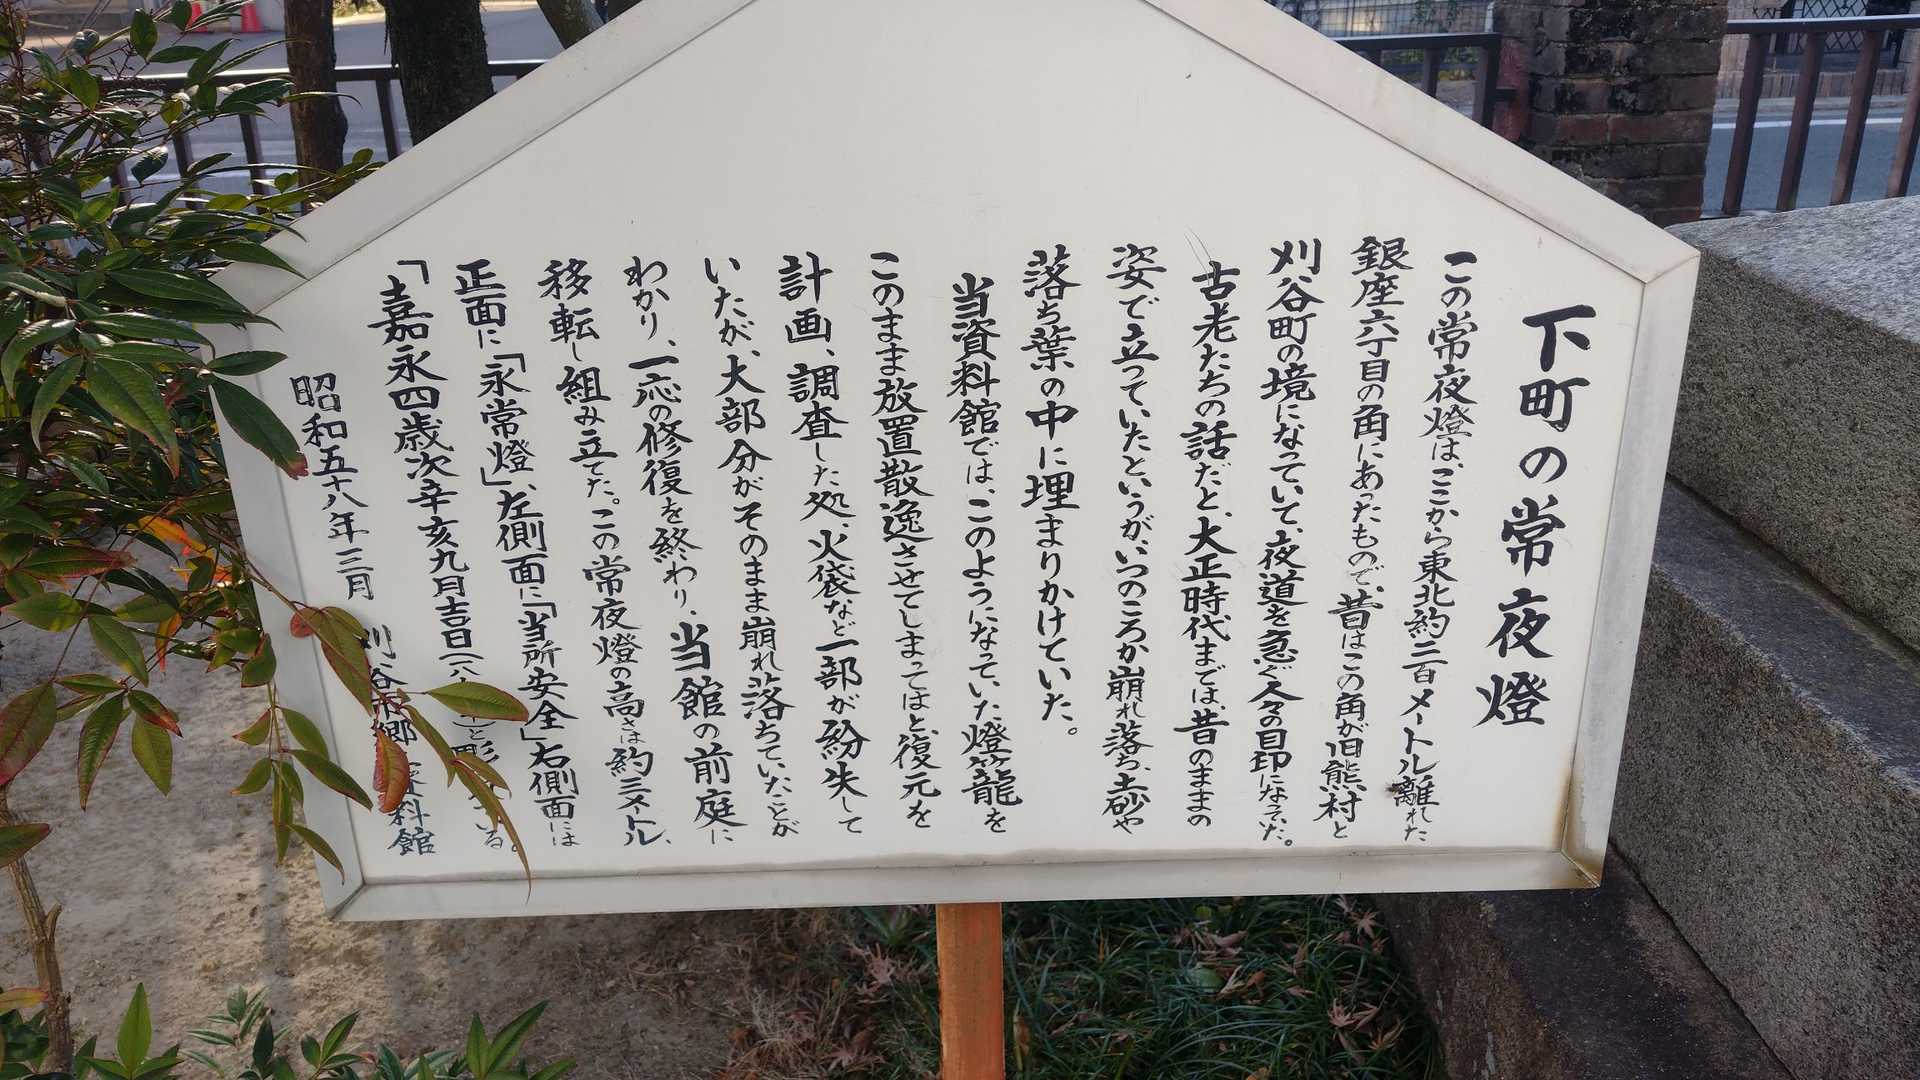 下町の常夜燈
この常夜燈は、ここから東北約二百メートル離れた
銀座六丁目の角にあったもので、昔はこの角が旧熊村と
刈谷町の境になっていて、夜道を急ぐ人々の目印になっていた。
古老たちの話だと、大正時代までは、昔のままの
姿で立っていたというが、いつのころか崩れ落ち、土砂や
落ち葉の中に埋まりかけていた。
当資料館では、このようになっていた燈籠を
このまま放置散逸させてしまってはと、復元を
計画、調査した処、火袋など一部が紛失して
いたが、大部分がそのまま崩れ落ちていたことが
わかり、一応の修復を終わり、当館の前庭に
移転し組み立てた。この常夜燈の高さは約三メートル、
正面に「永常燈」、左側面に「当所安全」右側面には
「嘉永四歳次辛亥九月吉日(一八 )と彫 いる。
昭和五十八年三月 刈谷市郷 資料館